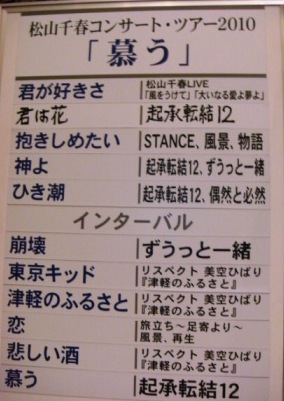 松山千春コンサート・ツアー2010
「慕う」
君が好きさ 松山千春LIVE
「風をうけて」「大いなる愛よ夢よ」
君は花 起承転結12
抱きしめたい STANCE、風景、物語
神よ 起承転結12、ずうっと一緒
ひき潮 起承転結12、偶然と必然
インターバル
崩壊 ずうっと一緒
東京キッド リスペクト 美空ひばり
『津軽のふるさと』
津軽のふるさと リスペクト 美空ひばり
『津軽のふるさと』
恋 旅立ち～足寄より～
風景、再生
悲しい酒 リスペクト 美空ひばり
『津軽のふるさと』
慕う 起承転結12